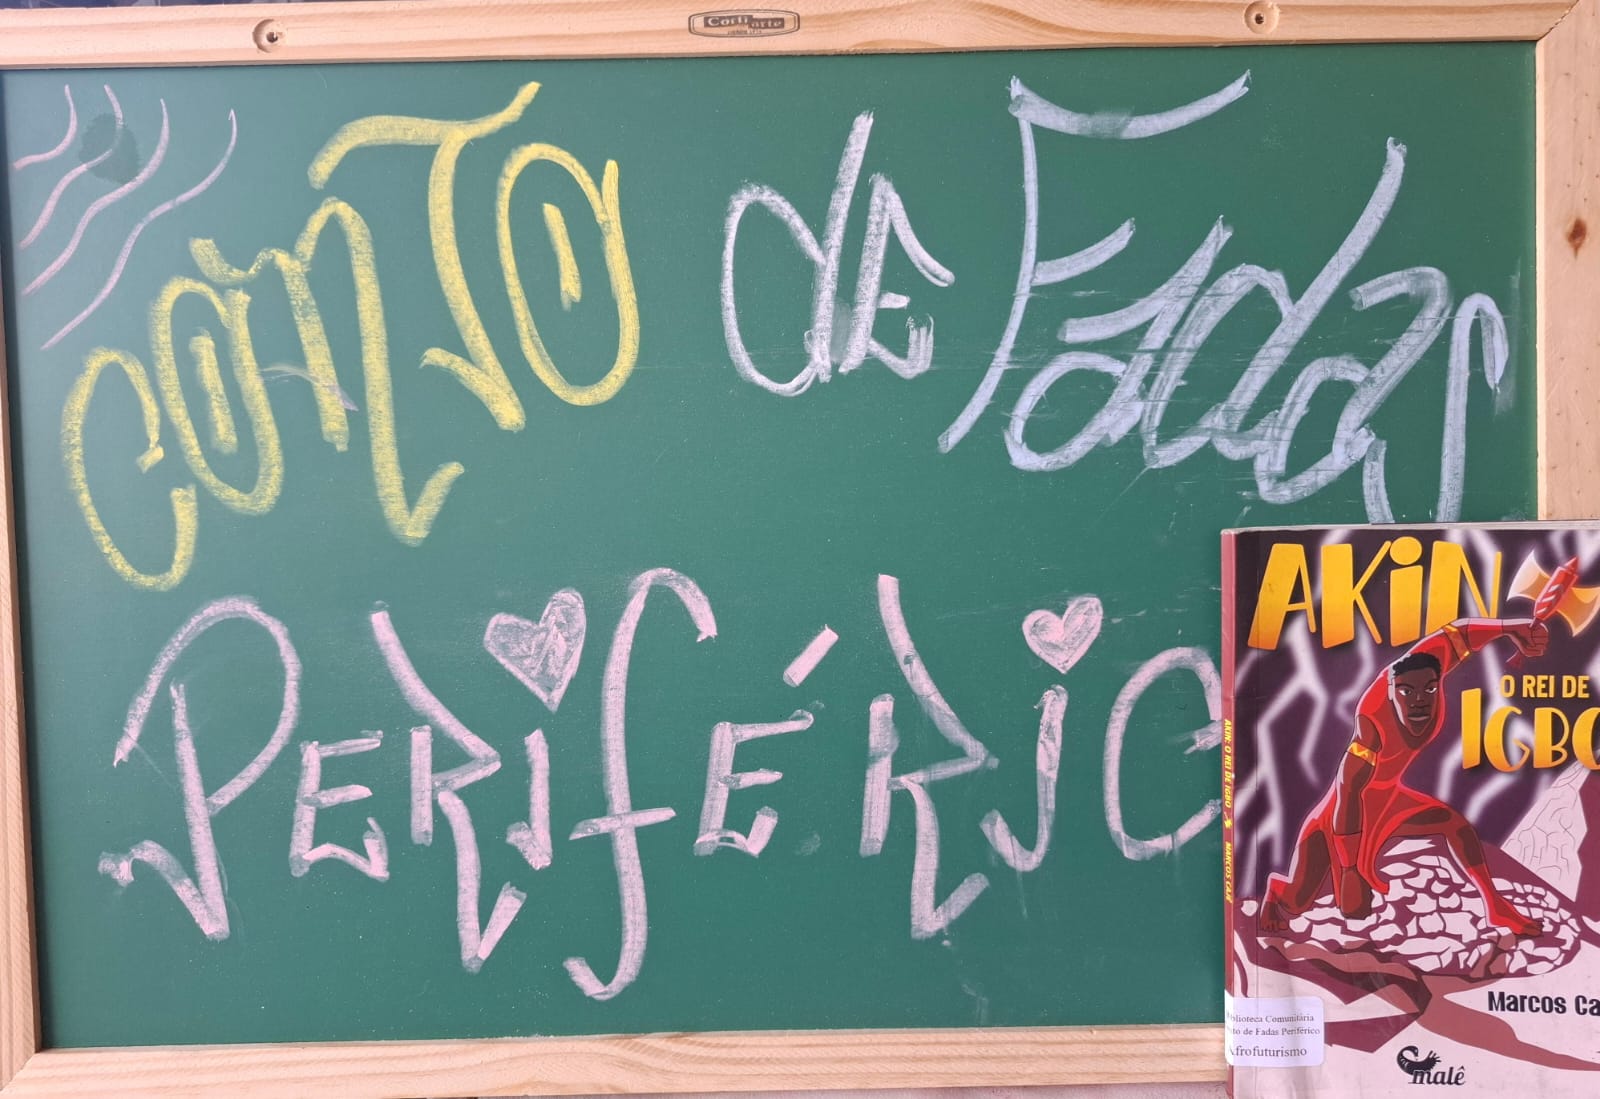 Corti arte
CONTO de Fadas
PERIFÉRIC
AKIN
O REI DE
IGBO
AKIN: O REI DE IGBO
MARCOS CAJÉ
Marcos Ca
Biblioteca Comunitária
to de Fadas Periférico
Afrofuturismo
malê